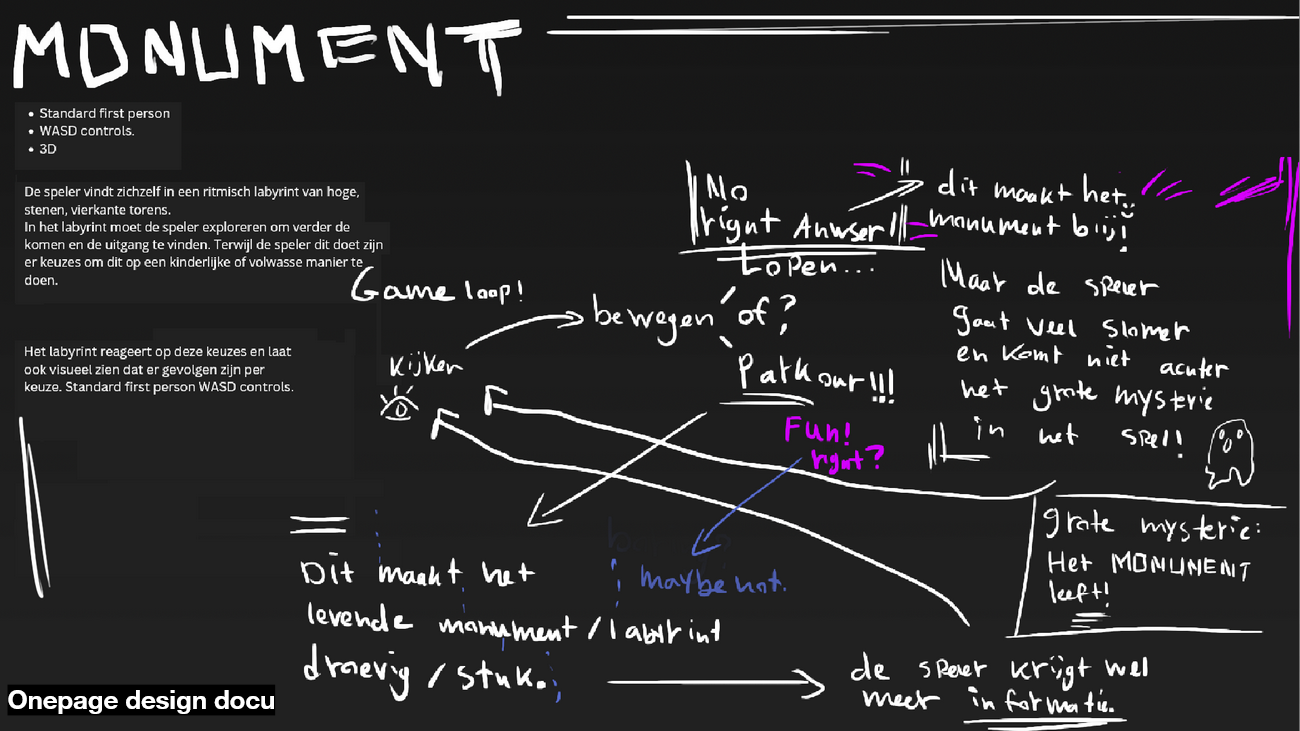 MONUMENT
• Standard first person
• WASD controls.
• 3D
De speler vindt zichzelf in een ritmisch labyrint van hoge,
stenen, vierkante torens.
In het labyrint moet de speler exploreren om verder de
komen en de uitgang te vinden. Terwijl de speler dit doet zijn
er keuzes om dit op een kinderlijke of volwasse manier te
doen.
Het labyrint reageert op deze keuzes en laat
ook visueel zien dat er gevolgen zijn per
keuze. Standard first person WASD controls.
Game loop!
kijken
bewegen
of?
Lopen...
Parkour!!!
No
right Anwser!
dit maakt het
monument blij!
Maar de speler
gaat veel slomer
en komt niet achter
het grote mysterie
in het spel!
Fun!
right?
maybe not.
grote mysterie:
Het MONUMENT
leeft!
Dit maakt het
levende monument / labyrint
droevig / stuk.
de speler krijgt wel
meer informatie.
Onepage design docu